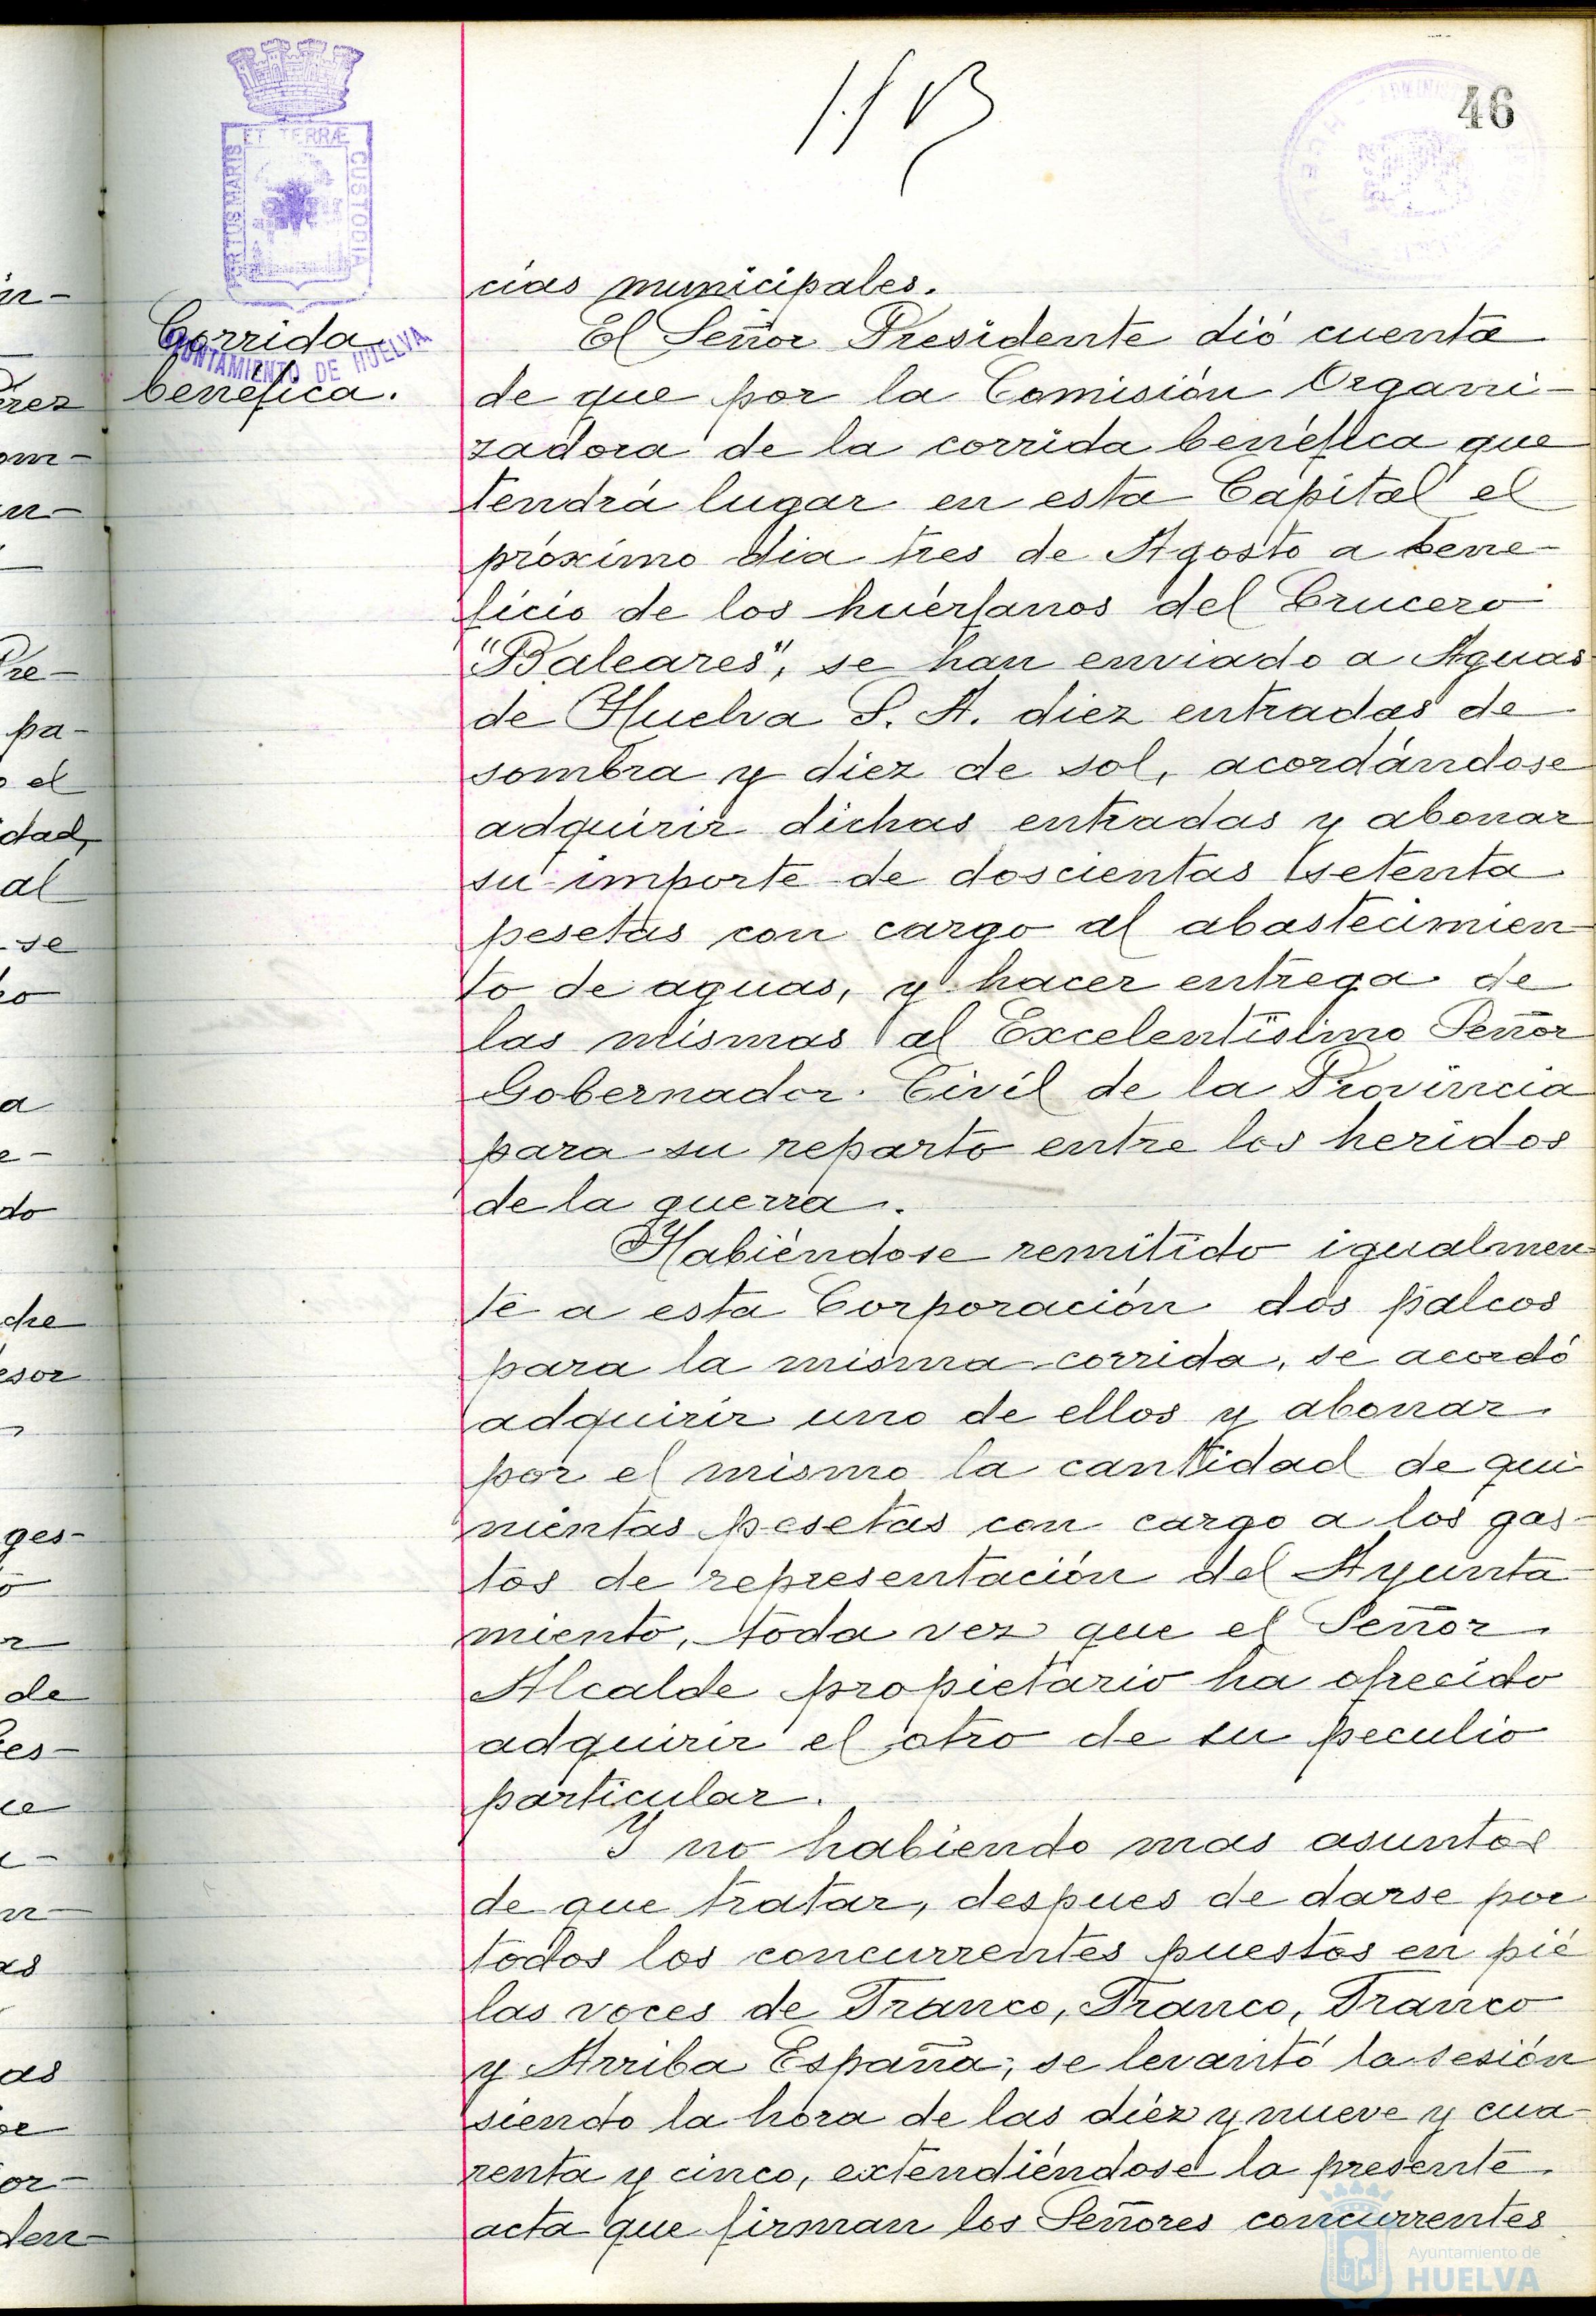 46
PORTUS MARIS ET TERRÆ CUSTODIA
AYUNTAMIENTO DE HUELVA
Corrida
benéfica.
cias municipales.
El Señor Presidente dió cuenta
de que por la Comisión Organi-
zadora de la corrida benéfica que
tendrá lugar en esta Capital el
próximo dia tres de Agosto a bene-
ficio de los huérfanos del Crucero
"Baleares", se han enviado a Aguas
de Huelva S. A. diez entradas de
sombra y diez de sol, acordándose
adquirir dichas entradas y abonar
su importe de doscientas setenta
pesetas con cargo al abastecimien-
to de aguas, y hacer entrega de
las mismas al Excelentísimo Señor
Gobernador Civil de la Provincia
para su reparto entre los heridos
de la guerra.
Habiéndose remitido igualmen-
te a esta Corporación dos palcos
para la misma corrida, se acordó
adquirir uno de ellos y abonar
por el mismo la cantidad de qui
nientas pesetas con cargo a los gas-
tos de representación del Ayunta-
miento, toda vez que el Señor
Alcalde propietario ha ofrecido
adquirir el otro de su peculio
particular.
Y no habiendo mas asuntos
de que tratar, despues de darse por
todos los concurrentes puestos en pié
las voces de Franco, Franco, Franco
y Arriba España, se levantó la sesión
siendo la hora de las diez y nueve y cua-
renta y cinco, extendiéndose la presente
acta que firman los Señores concurrentes
Ayuntamiento de
HUELVA